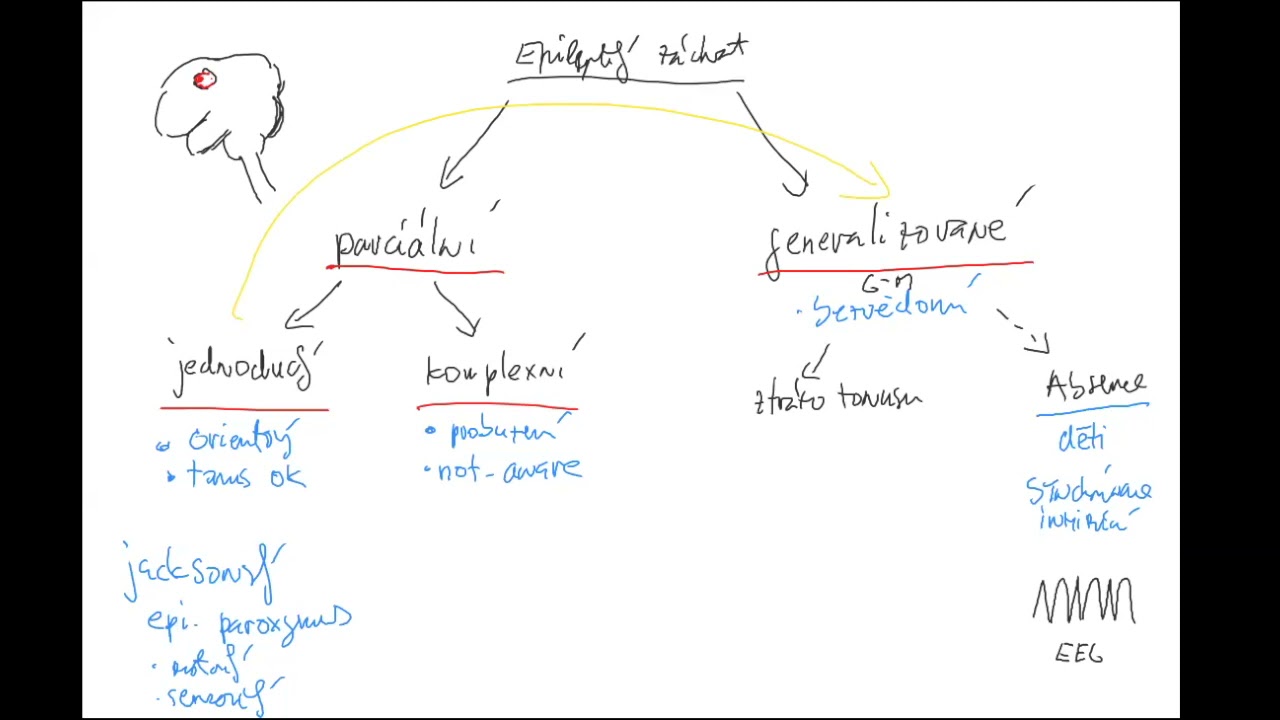 Epileptický záchvat
parciální
generalizované
G-M
• bezvědomí
jednoduchý
komplexní
ztráta tonusu
Absence
• orientový
• tonus ok
• probuzení
• not-aware
děti
jacksonský
epi. paroxysmus
• motorský
• senzorský
EEG